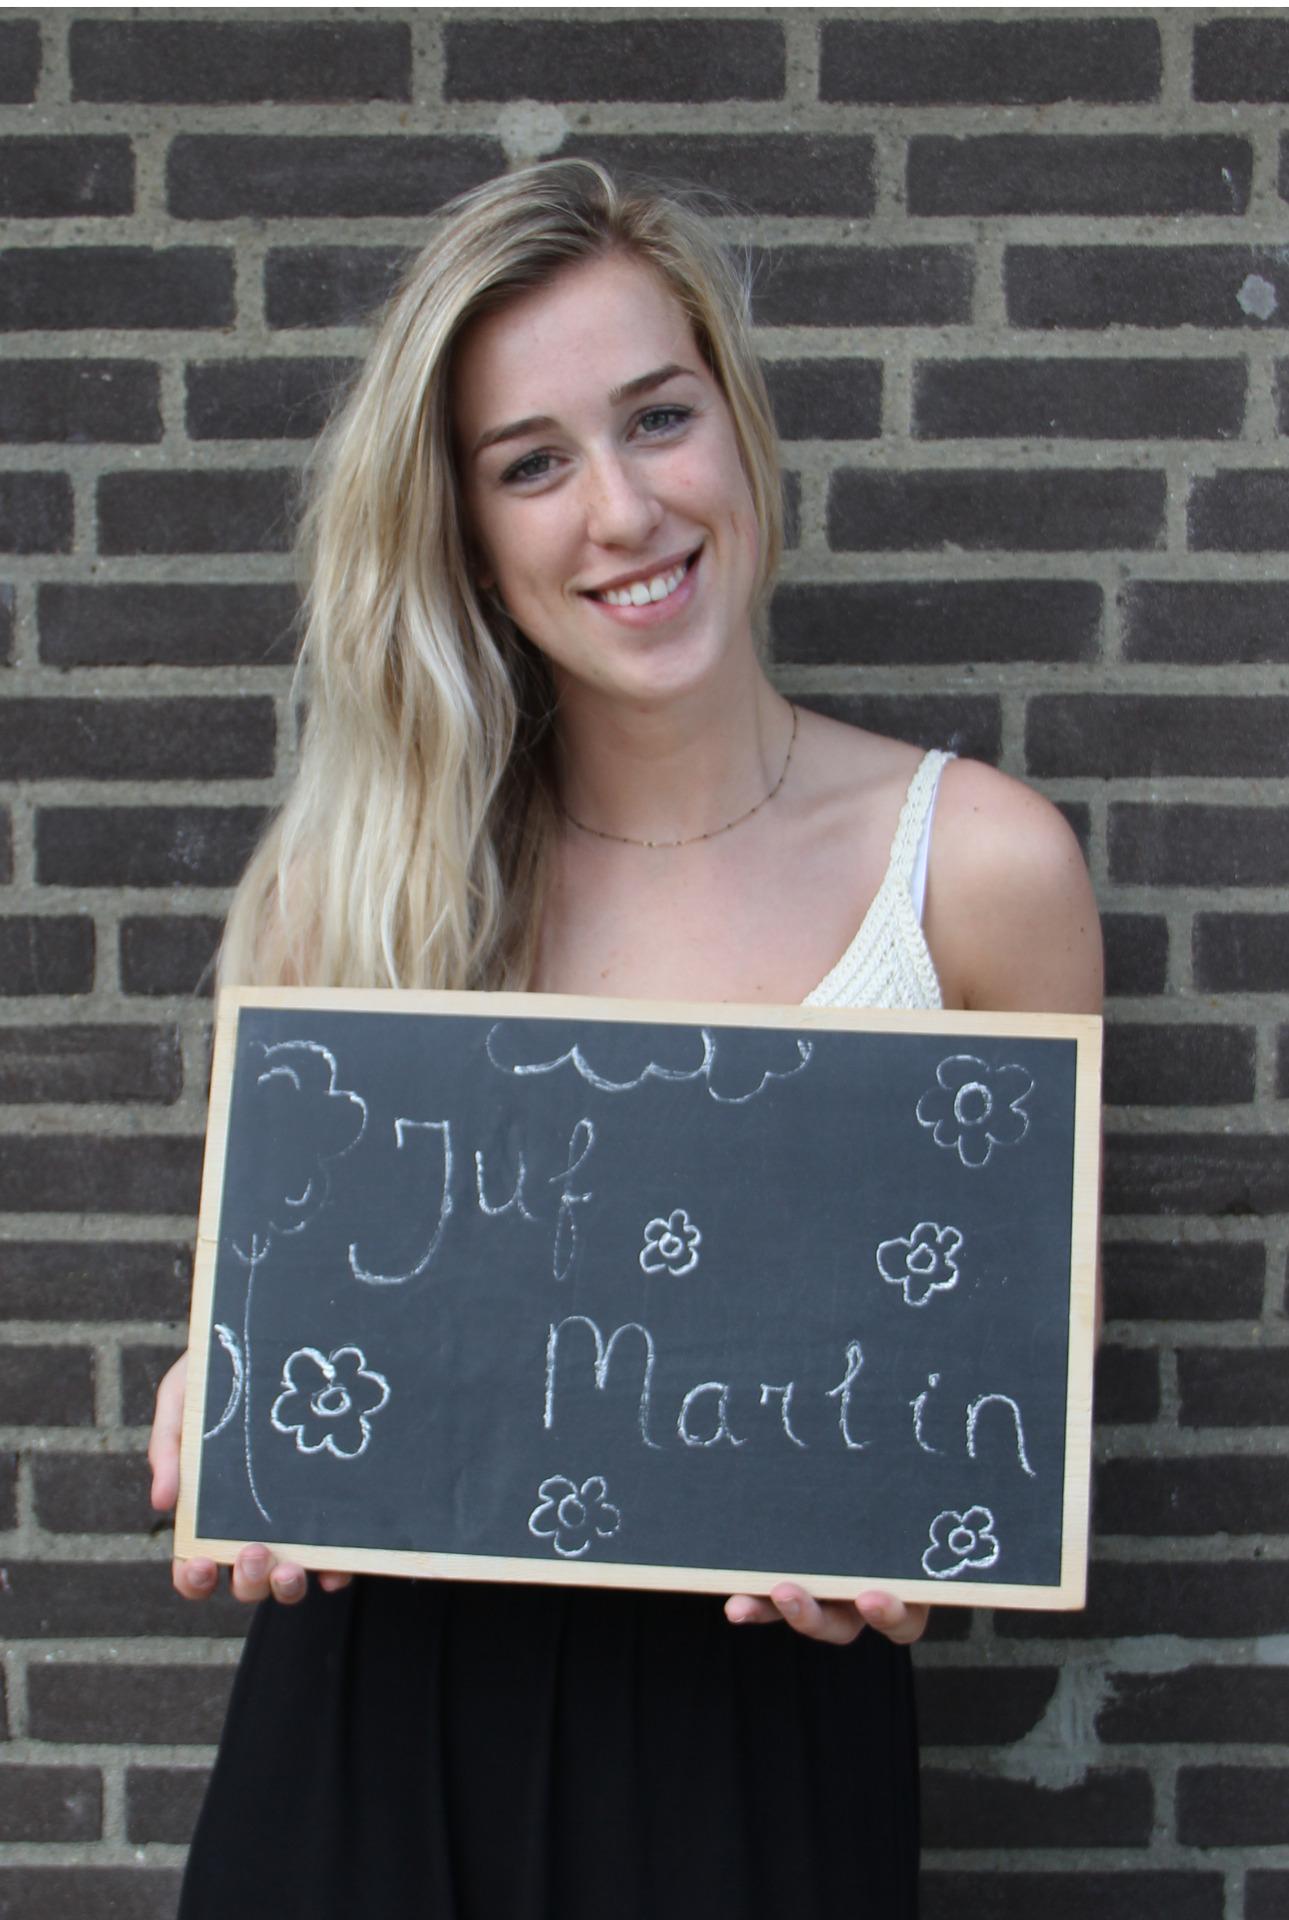 Juf
Marlin